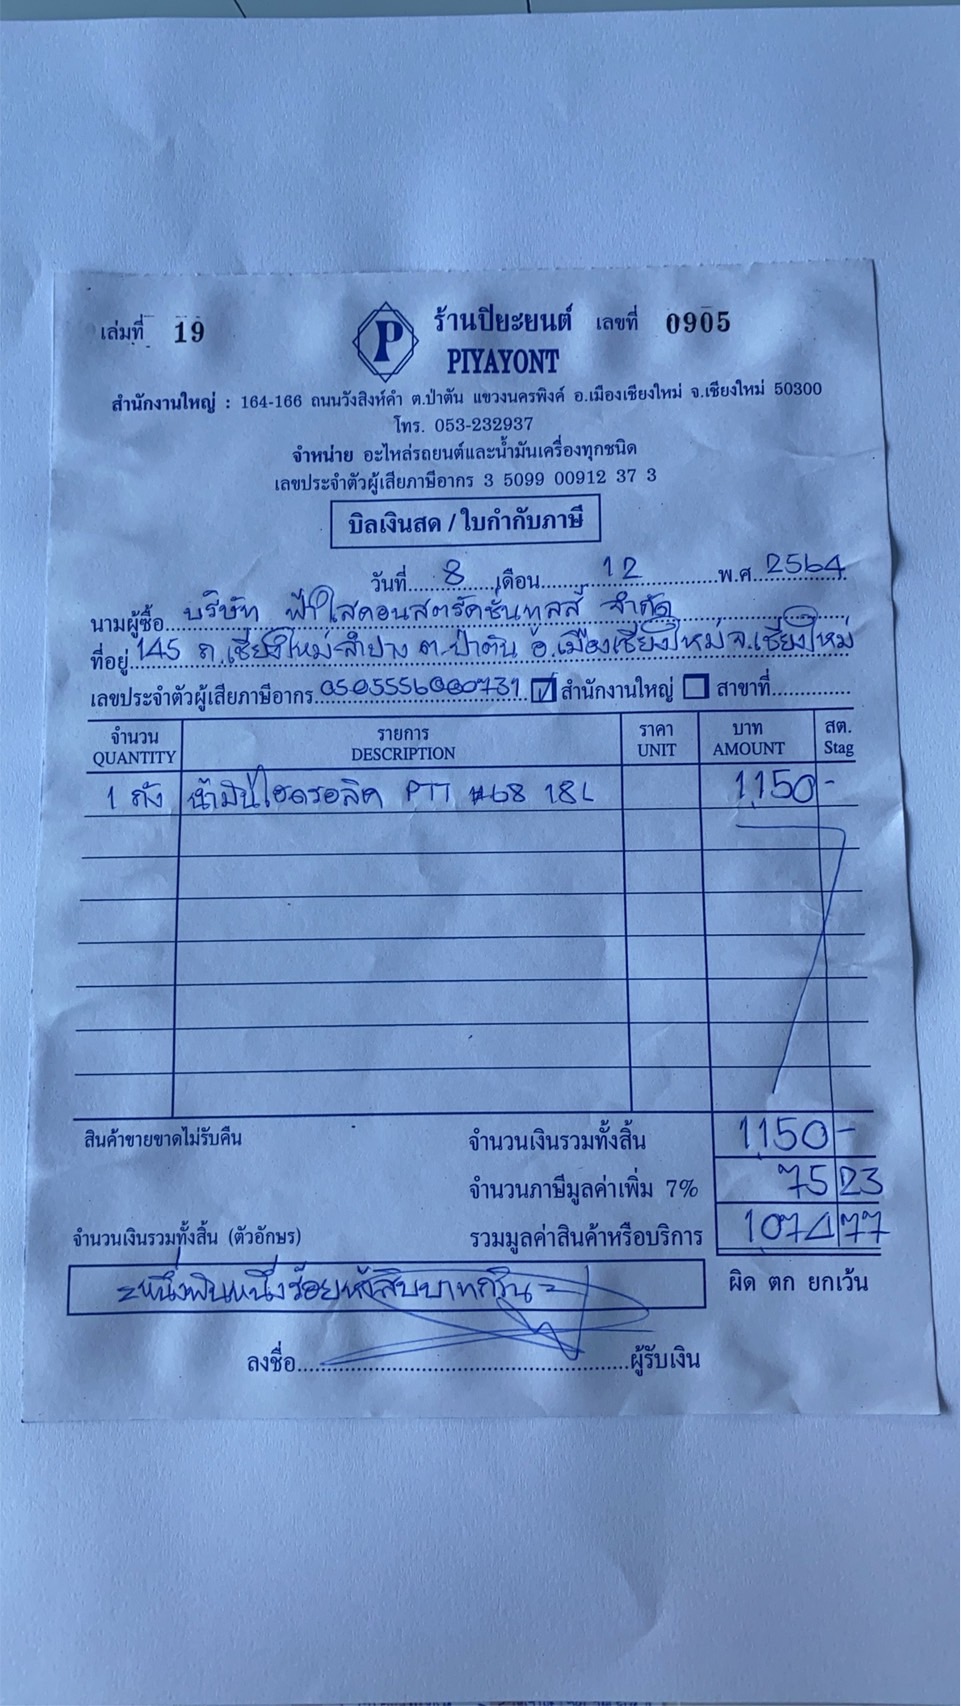 เล่มที่ 19 ร้านปิยะยนต์ เลขที่ 0905
P PIYAYONT
สำนักงานใหญ่ : 164-166 ถนนวังสิงห์คำ ต.ป่าตัน แขวงนครพิงค์ อ.เมืองเชียงใหม่ จ.เชียงใหม่ 50300
โทร. 053-232937
จำหน่าย อะไหล่รถยนต์และน้ำมันเครื่องทุกชนิด
เลขประจำตัวผู้เสียภาษีอากร 3 5099 00912 37 3
บิลเงินสด / ใบกำกับภาษี
วันที่ 8 เดือน 12 พ.ศ. 2564
นามผู้ซื้อ บริษัท ฟ้าใสคอนสตรัคชั่นทูลส์ จำกัด
ที่อยู่ 145 ถ.เชียงใหม่-ลำปาง ต.ป่าตัน อ.เมืองเชียงใหม่ จ.เชียงใหม่
เลขประจำตัวผู้เสียภาษีอากร 0505556000731 ☑ สำนักงานใหญ่ ☐ สาขาที่
จำนวน รายการ ราคา บาท สต.
QUANTITY DESCRIPTION UNIT AMOUNT Stag
1 ถัง น้ำมันไฮดรอลิค PTT #68 18L 1,150 -
สินค้าขายขาดไม่รับคืน จำนวนเงินรวมทั้งสิ้น 1,150 -
จำนวนภาษีมูลค่าเพิ่ม 7% 75 23
จำนวนเงินรวมทั้งสิ้น (ตัวอักษร) รวมมูลค่าสินค้าหรือบริการ 1,074 77
=หนึ่งพันหนึ่งร้อยห้าสิบบาทถ้วน= ผิด ตก ยกเว้น
ลงชื่อ ผู้รับเงิน